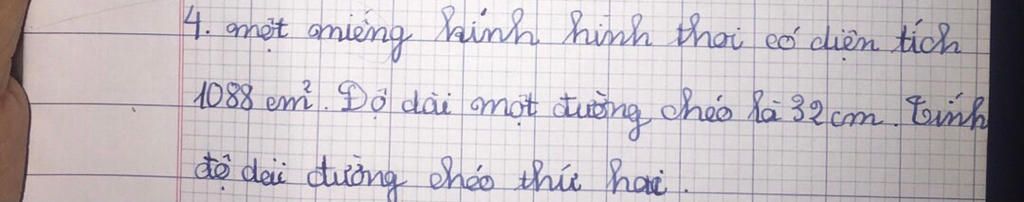 4. một miếng kính hình thoi có diện tích
1088 cm². Độ dài một đường chéo là 32 cm. Tính
độ dài đường chéo thứ hai.